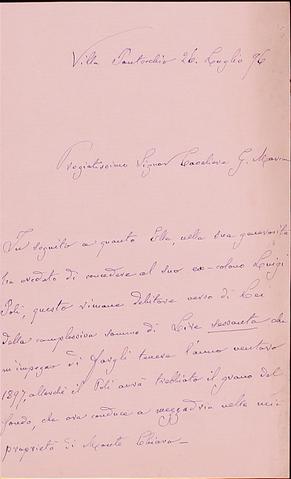 Villa Pantocchio 26. Luglio 96
Pregiatissimo Signor Cavaliere G. Marin
In seguito a quanto Ella, nella sua generosità
ha creduto di concedere al suo ex-colono Luigi
Poli, questo rimane debitore verso di Lei
della complessiva somma di Lire sessanta che
m'impegno di fargli tenere l'anno venturo
1897, allorchè il Poli avrà trebbiato il grano del
fondo, che ora conduce a mezzadria nella mia
proprietà di Monte Chiaro—